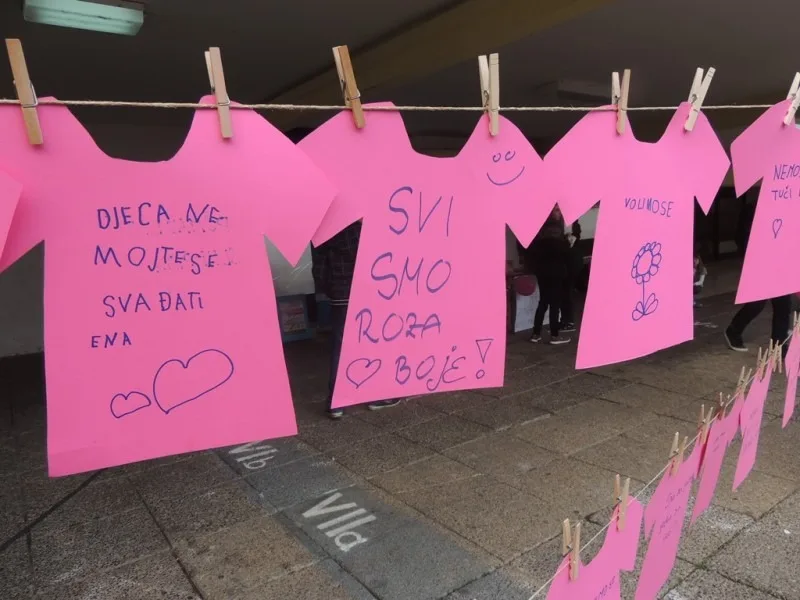 DJECA NE
MOJTESE
SVAĐATI
ENA
SVI
SMO
ROZA
BOJE!
VOLIMOSE
TUČI
VIb
VIIa